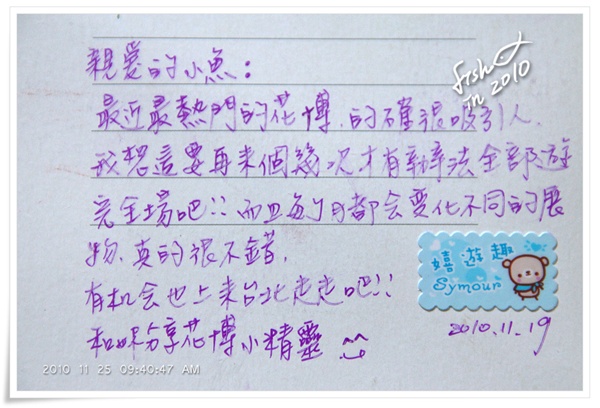 親爱的小魚：
fish
in 2010
最近最熱門的花博，的確很吸引人，
我想這要再來個幾次才有辦法全部遊
完全場吧!! 而且每月都会变化不同的展
物，真的很不錯，
有机会也上来台北走走吧!!
和妳分享花博小精靈
嬉遊趣
Symour
2010.11.19
2010 11 25 09:40:47 AM